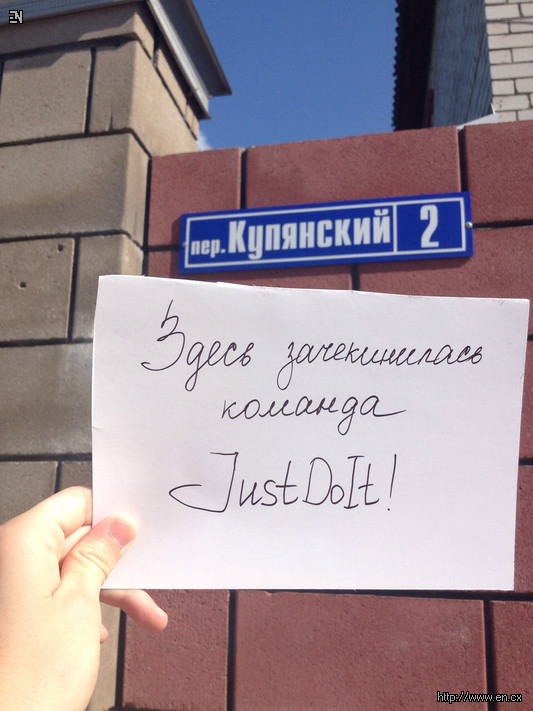 EN
пер. Купянский 2
Здесь зачекинилась
команда
JustDoIt!
http://www.en.cx